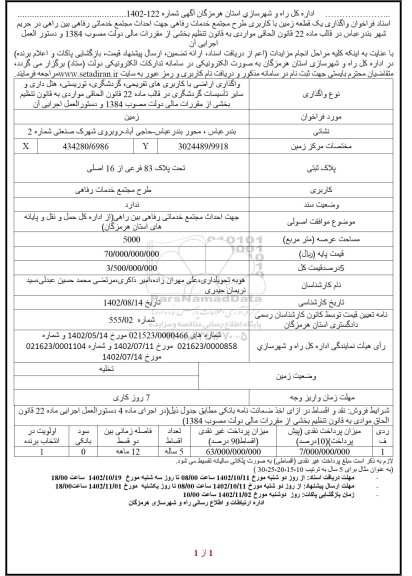 اداره کل راه و شهرسازی استان هرمزگان آگهی شماره 122-1402
اسناد فراخوان واگذاری یک قطعه زمین با کاربری طرح مجتمع خدماتی رفاهی جهت احداث مجتمع خدماتی رفاهی بین راهی در حریم
شهر بندرعباس در قالب ماده 22 قانون الحاقی مواردی به قانون تنظیم بخشی از مقررات مالی دولت مصوب 1384 و دستور العمل
اجرایی آن
با عنایت به اینکه کلیه مراحل انجام مزایدات (اعم از دریافت اسناد، ارائه تضمین، ارسال پیشنهاد قیمت، بازگشایی پاکات و اعلام برنده)
در اداره کل راه و شهرسازی استان هرمزگان به صورت الکترونیکی در سامانه تدارکات الکترونیکی دولت (ستاد) برگزار می گردد،
متقاضیان محترم بایستی جهت ثبت نام در سامانه مذکور و دریافت نام کاربری و رمز عبور به سایت www.setadiran.ir مراجعه فرمایند.
نوع واگذاری
واگذاری اراضی با کاربری های تفریحی، گردشگری، توریستی، هتل داری و
سایر تأسیسات گردشگری در قالب ماده 22 قانون الحاقی مواردی به قانون تنظیم
بخشی از مقررات مالی دولت مصوب 1384 و دستورالعمل اجرایی آن
مورد فراخوان زمین
نشانی بندرعباس ، محور بندرعباس-حاجی آباد،روبروی شهرک صنعتی شماره 2
مختصات مرکز زمین 3024489/9918 Y 434280/6986 X
پلاک ثبتی تحت پلاک 83 فرعی از 16 اصلی
کاربری طرح مجتمع خدمات رفاهی
وضعیت سند ندارد
موضوع موافقت اصولی
جهت احداث مجتمع خدماتی رفاهی بین راهی(از اداره کل حمل و نقل و پایانه
های استان هرمزگان)
مساحت عرصه (متر مربع) 5000
قیمت پایه (ریال) 70/000/000/000
5درصدقیمت کل 3/500/000/000
نام کارشناسان
هوبه تحویلداری،علی مهران زاده،امیر ذاکری،مرتضی محمد حسین عبدلی،سید
نریمان حیدری
تاریخ کارشناسی تاریخ 1402/08/14
نامه تعیین قیمت توسط کانون کارشناسان رسمی
دادگستری استان هرمزگان
شماره 555/02
رأی هیأت نمایندگی اداره کل راه و شهرسازی
شماره های 021523/0000466 مورخ 1402/05/14 و شماره
021623/0000858 مورخ 1402/07/11 و شماره 021623/0001104
مورخ 1402/07/14
وضعیت زمین تخلیه
مهلت زمان واریز وجه 7 روز کاری
شرایط فروش: نقد و اقساط در ازای اخذ ضمانت نامه بانکی مطابق جدول ذیل(در اجرای ماده 4 دستورالعمل اجرایی ماده 22 قانون
الحاق موادی به قانون تنظیم بخشی از مقررات مالی دولت مصوب 1384)
ردیف میزان پرداخت نقدی (پیش پرداخت)(10درصد) میزان پرداخت غیر نقدی (اقساط)90 درصد) تعداد اقساط فاصله زمانی بین دو قسط سود بانکی اولویت در انتخاب برنده
1 7/000/000/000 63/000/000/000 5 ساله 12 ماهه 0 1
لازم به ذکر است مبلغ پرداخت غیر نقدی (اقساطی) به صورت پلکانی سالیانه تقسیط می شود.
(به عنوان مثال برای 5 سال به ترتیب 10-15-20-25-30)
- مهلت دریافت اسناد: از روز دو شنبه مورخ 1402/10/11 ساعت 08/00 تا روز سه شنبه مورخ 1402/10/19 ساعت 18/00
- مهلت ارسال پیشنهاد: از روز دو شنبه مورخ 1402/10/11 ساعت 08/00 تا روز یکشنبه مورخ 1402/11/01 ساعت18/00
- زمان بازگشایی پاکات: روز دوشنبه مورخ 1402/11/02 ساعت 10/00
اداره ارتباطات و اطلاع رسانی راه و شهرسازی هرمزگان
1 از 1